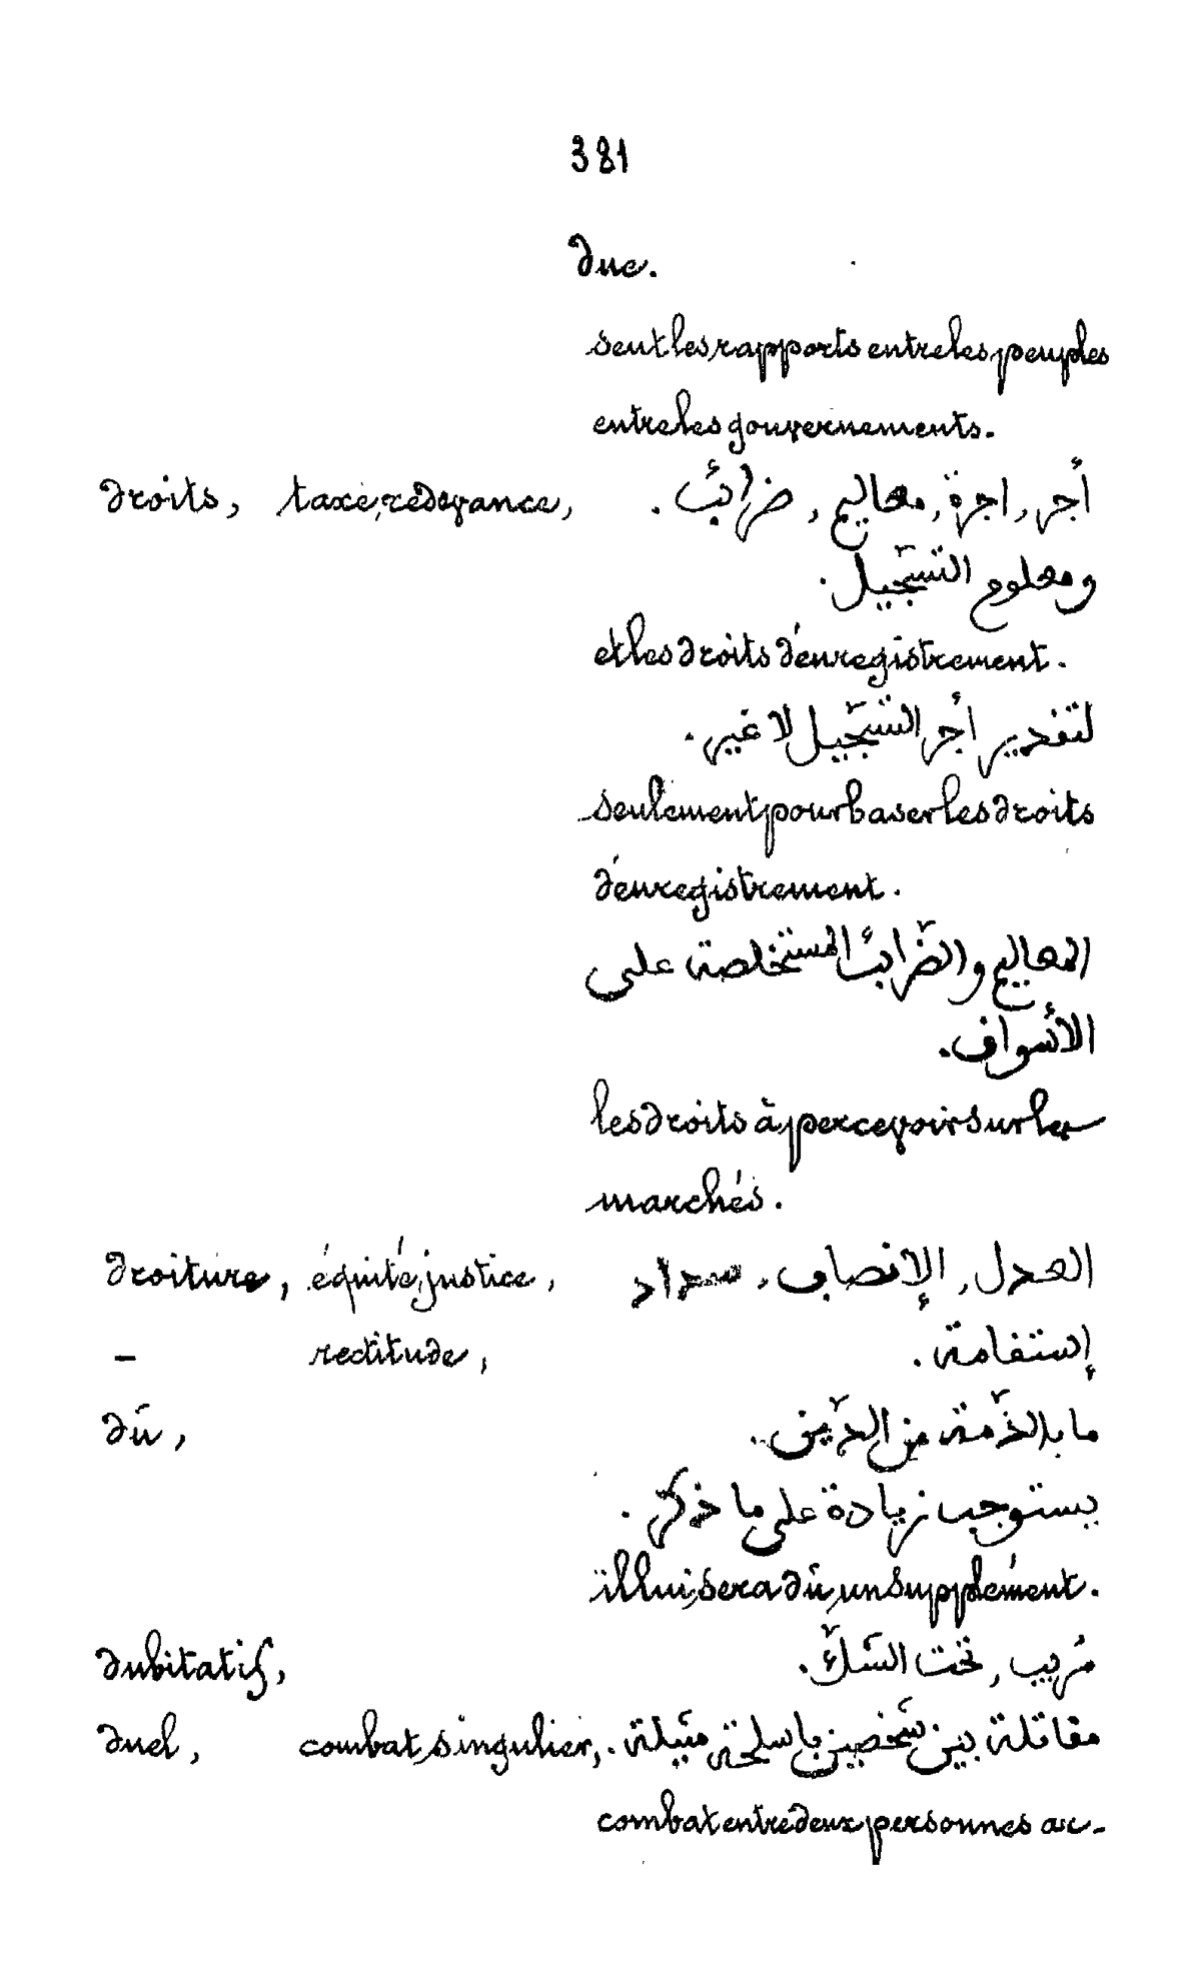 381
duc.
sent les rapports entre les peuples
entre les gouvernements.
droits, taxe, redevance, أجر, اجرة, معاليم, ضرائب.
ومعلوم التسجيل.
et les droits d'enregistrement.
لتفدير أجر التسجيل لا غير.
seulement pour baser les droits
d'enregistrement.
المعاليم والضّرائب المستخلصة على
الأسواف.
les droits à percevoir sur les
marchés.
droiture, équité, justice, العدل, الإنصاف, سداد
— rectitude, إستفامة.
dû, ما بالذّمة من الدّين.
يستوجب زيادة على ما ذكر.
il lui sera dû un supplément.
dubitatif, مُريب, تحت الشّكّ.
duel, combat singulier, مقاتلة بين شخصين باسلحة مثيلة.
combat entre deux personnes av-